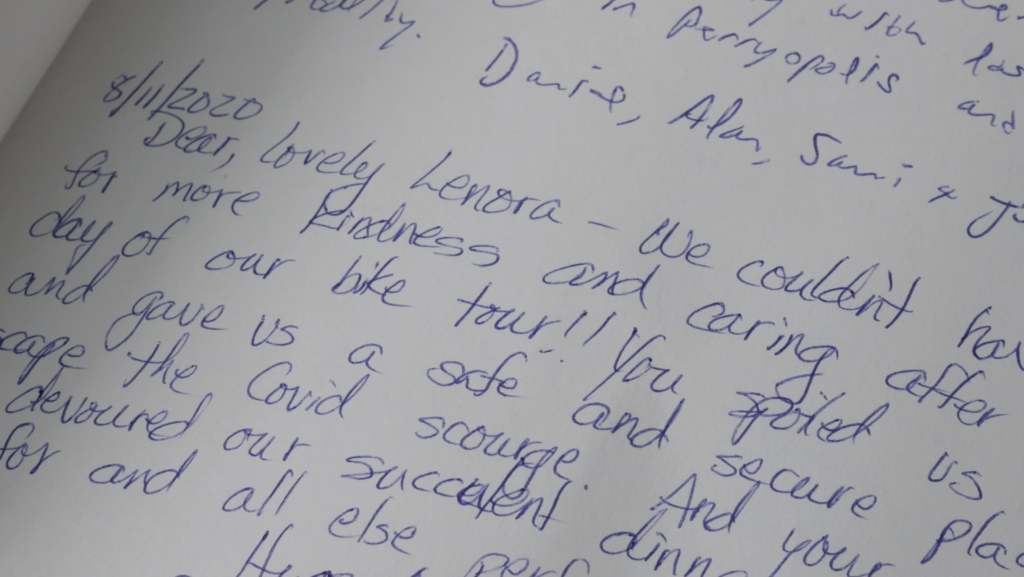 with
in Perryopolis and
Alan, Sami &
8/11/2020
Dear, Lovely Lenora – We couldn't
for more kindness and caring after
day of our bike tour!! You spoiled us
and gave us a safe and secure
the Covid scourge. And your
devoured our succulent
for and all else